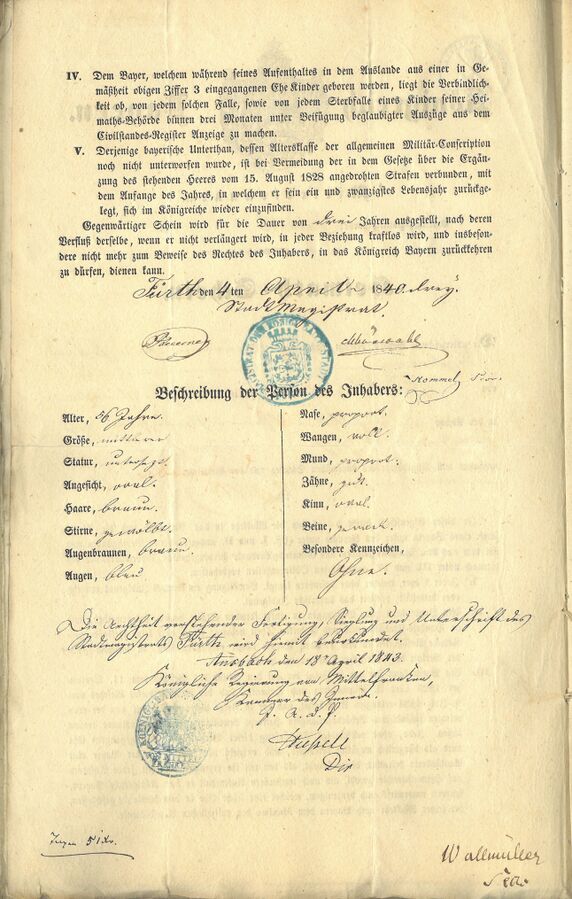 IV. Dem Bayer, welchem während seines Aufenthaltes in dem Auslande aus einer in Ge-
mäßheit obigen Ziffer 3 eingegangenen Ehe Kinder geboren werden, liegt die Verbindlich-
keit ob, von jedem solchen Falle, sowie von jedem Sterbfalle eines Kinder seiner Hei-
maths-Behörde binnen drei Monaten unter Beifügung beglaubigter Auszüge aus dem
Civilstandes-Register Anzeige zu machen.
V. Derjenige bayerische Unterthan, dessen Altersklasse der allgemeinen Militär-Conscription
noch nicht unterworfen wurde, ist bei Vermeidung der in dem Gesetze über die Ergän-
zung des stehenden Heeres vom 15. August 1828 angedrohten Strafen verbunden, mit
dem Anfange des Jahres, in welchem er sein ein und zwanzigstes Lebensjahr zurückge-
legt, sich im Königreiche wieder einzufinden.
Gegenwärtiger Schein wird für die Dauer von drei Jahren ausgestellt, nach deren
Verfluß derselbe, wenn er nicht verlängert wird, in jeder Beziehung kraftlos wird, und insbeson-
dere nicht mehr zum Beweise des Rechtes des Inhabers, in das Königreich Bayern zurückkehren
zu dürfen, dienen kann.
Fürth den 4ten April 1840 drey.
Stadtmagistrat.
Beschreibung der Person des Inhabers:
Alter, 36 Jahre.
Größe, mittlerer
Statur, untersetzt.
Angesicht, oval.
Haare, braun.
Stirne, gewölbt.
Augenbraunen, braun.
Augen, blau
Nase, proport.
Wangen, voll.
Mund, proport.
Zähne, gut.
Kinn, oval.
Beine, gerade.
Besondere Kennzeichen,
Ohne.
Die Aechtheit vorstehender Fertigung, Sieglung und Unterschrift des
Stadtmagistrats Fürth wird hiemit beurkundet.
Ansbach den 18ten April 1843.
Königliche Regierung von Mittelfranken,
Kammer des Innern.
Dir
Wallmüller